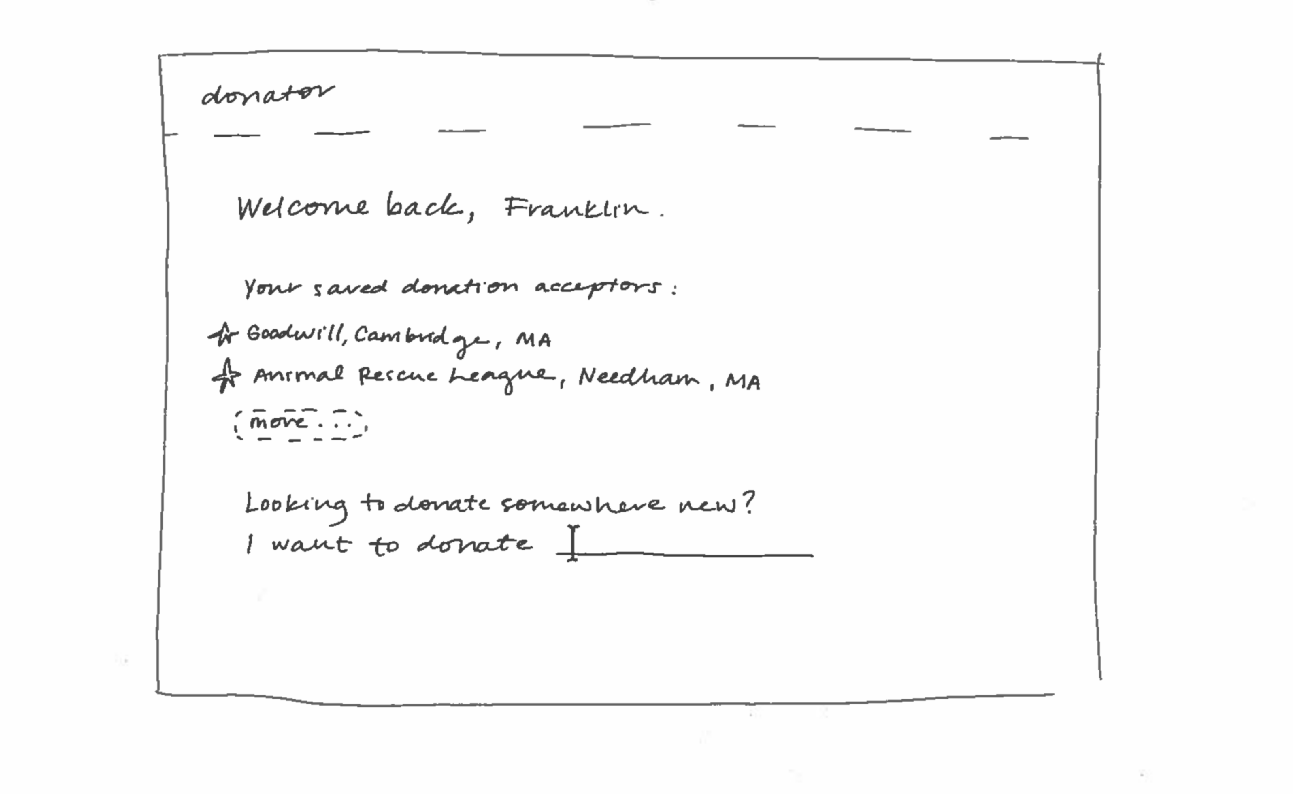 donator
Welcome back, Franklin.
Your saved donation acceptors:
Goodwill, Cambridge, MA
Animal Rescue League, Needham, MA
more...
Looking to donate somewhere new?
I want to donate